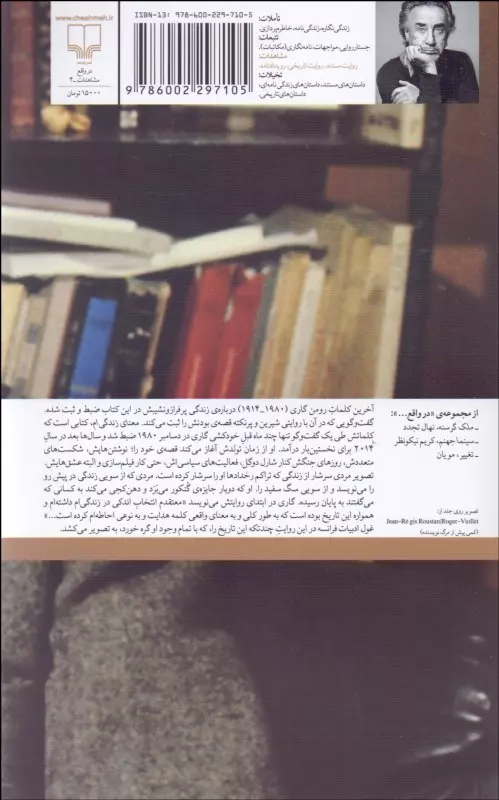 www.cheshmeh.ir
در واقع
مشاهدات ـ ۴
۱۵۰۰۰ تومان
ISBN-13: 978-600-229-710-5
9 786002 297105
تأملات:
زندگی‌نگاره، زندگی‌نامه، خاطره‌پردازی.
تتبعات:
جستارروایی، مواجهات، نامه‌نگاری (مکاتبات).
مشاهدات:
روایت مستند، روایت تاریخی، رویدادنامه.
تخیلات:
داستان‌های مستند، داستان‌های زندگی‌نامه‌ای،
داستان‌های تاریخی.
آخرین کلماتِ رومن گاری (۱۹۸۰ـ۱۹۱۴) درباره‌ی زندگی پرفرازونشیبش در این کتاب ضبط و ثبت شده.
گفت‌وگویی که در آن با روایتی شیرین و پرنکته قصه‌ی بودنش را ثبت می‌کند. معنای زندگی‌ام، کتابی است که
کلماتش طی یک گفت‌وگو تنها چند ماه قبلِ خودکشی گاری در دسامبر ۱۹۸۰ ضبط شد و سال‌ها بعد در سالِ
۲۰۱۴ برای نخستین‌بار درآمد. او از زمان تولدش آغاز می‌کند قصه‌ی خود را؛ نوشتن‌هایش، شکست‌های
متعددش، روزهای جنگش کنار شارل دوگل، فعالیت‌های سیاسی‌اش، حتی کار فیلم‌سازی و البته عشق‌هایش.
تصویر مردی سرشار از زندگی که تراکم رخدادها او را سرشار کرده است. مردی که از سویی زندگی در پیش رو
را می‌نویسد و از سویی سگ سفید را. او که دوبار جایزه‌ی گُنکور می‌بَرَد و دهن‌کجی می‌کند به کسانی که
می‌گفتند به پایان رسیده. گاری در ابتدای روایتش می‌نویسد «معتقدم انتخاب اندکی در زندگی‌ام داشته‌ام و
همواره این تاریخ بوده است که به طور کلی و به معنای واقعی کلمه هدایت و به نوعی احاطه‌ام کرده است...»
غول ادبیات فرانسه در این روایتِ چندتکه این تاریخ را، که با تمام وجود او گره خورد، به تصویر می‌کشد.
از مجموعه‌ی «در واقع...»:
ـ ملک گرسنه، نهال تجدد
ـ سینما جهنم، کریم نیکونظر
ـ تغییر، مو یان
تصویر روی جلد از:
Jean-Régis Roustan/Roger-Viollet
(کمی پیش از مرگ نویسنده)